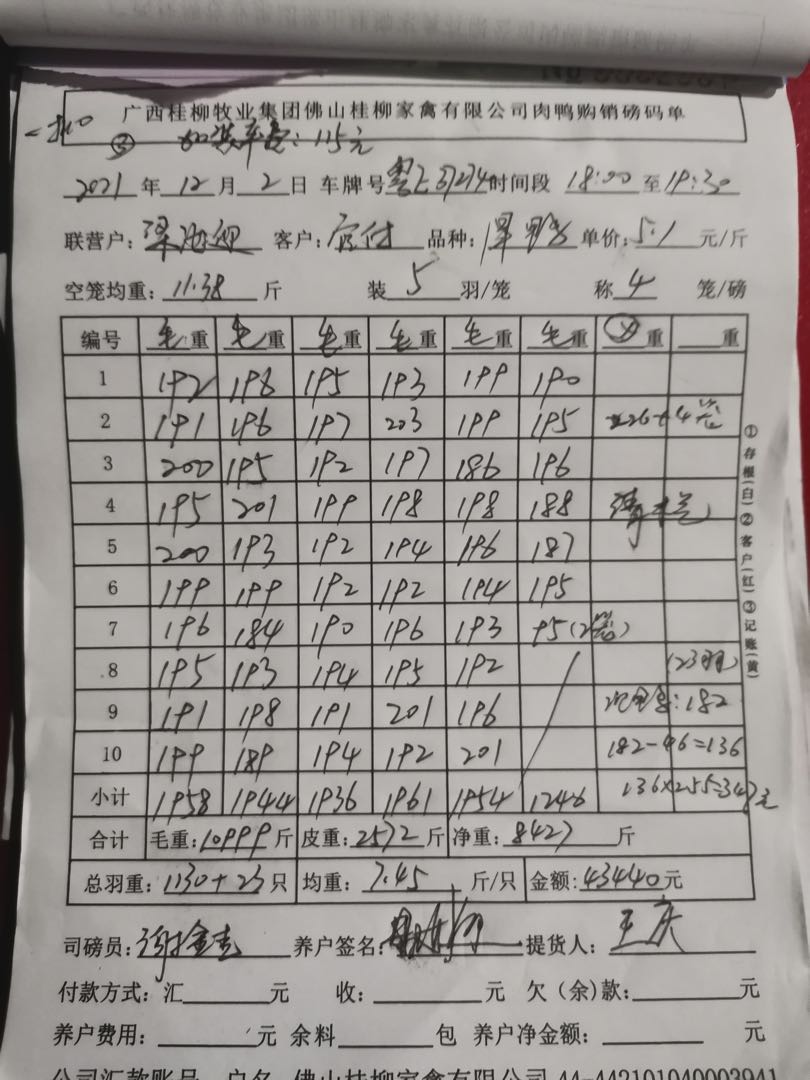 广西桂柳牧业集团佛山桂柳家禽有限公司肉鸭购销磅码单
加装车费：115元
2021 年 12 月 2 日 车牌号 时间段 18:00 至 19:30
联营户： 客户： 品种： 单价：5.1 元/斤
空笼均重：11.38 斤 装 5 羽/笼 称 4 笼/磅
编号 毛重 毛重 毛重 毛重 毛重 毛重 重 重
1 192 198 195 193 199 190
2 191 196 197 203 199 195 226+4
3 200 195 192 197 186 196
4 195 201 199 198 198 188
5 200 193 192 194 196 187
6 199 199 192 192 194 195
7 196 184 190 196 193 95(2笼)
8 195 193 194 195 192 (23羽)
9 191 198 191 201 196 :182
10 199 189 194 192 201 182-46=136
小计 1958 1944 1936 1961 1954 1246 136×2.55=347元
合计 毛重：10999斤 皮重：2572斤 净重：8427 斤
总羽重：1130+23只 均重：7.45 斤/只 金额：43440元
司磅员： 养户签名： 提货人：王庆
付款方式：汇 元 收： 元 欠（余）款： 元
养户费用： 元 余料 包 养户净金额： 元
公司汇款账号 户名 佛山桂柳家禽有限公司 44-442101040003941
①存根(白)②客户(红)③记账(黄)